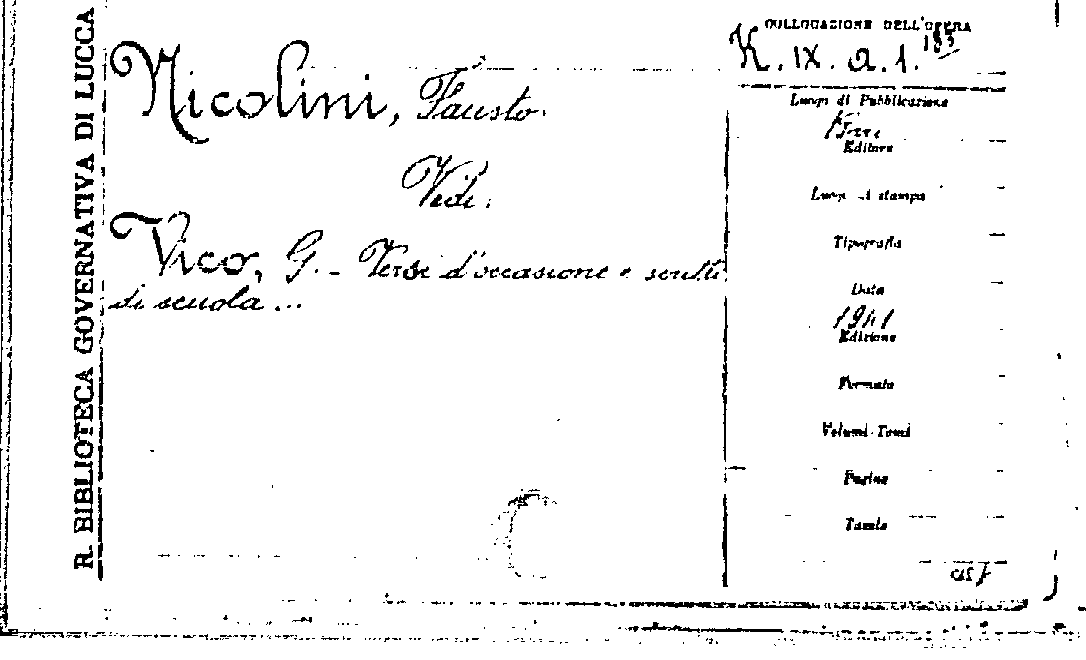 R. BIBLIOTECA GOVERNATIVA DI LUCCA
Nicolini, Fausto.
Vedi.
Vico, G. - Versi d'occasione e scritti
di scuola ...
COLLOCAZIONE DELL'OPERA
K. IX. a. 1. 183
Luogo di Pubblicazione
Editore
Luogo di stampa
Tipografia
Data
1941
Edizione
Formato
Volumi-Tomi
Pagine
Tavole